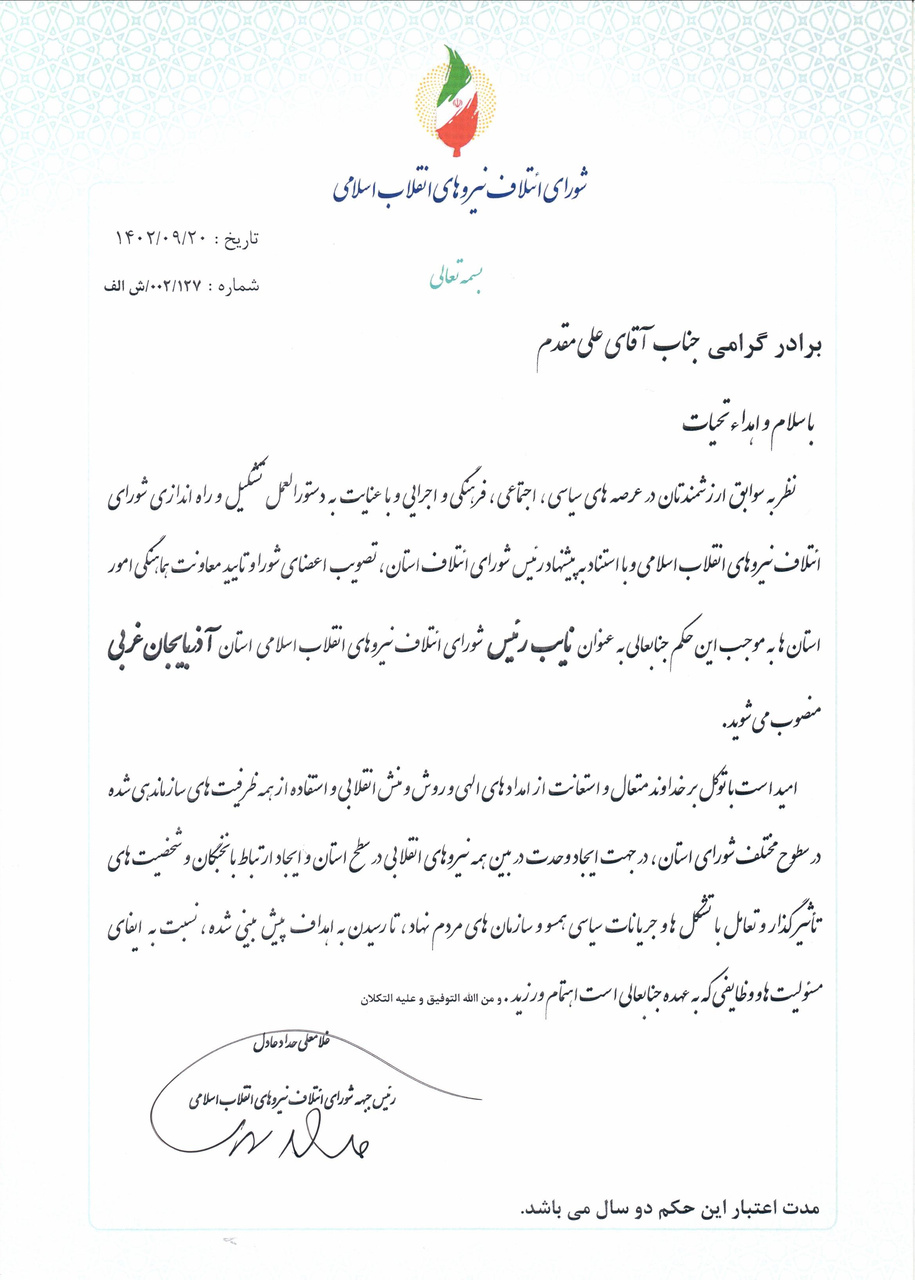 شورای ائتلاف نیروهای انقلاب اسلامی
تاریخ : ۱۴۰۲/۰۹/۲۰
بسمه تعالی
شماره : ۰۰۲/۱۲۷/ش الف
برادر گرامی جناب آقای علی مقدم
با سلام و اهداء تحیات
نظر به سوابق ارزشمندتان در عرصه های سیاسی ، اجتماعی ، فرهنگی و اجرایی و با عنایت به دستورالعمل تشکیل و راه اندازی شورای
ائتلاف نیروهای انقلاب اسلامی و با استناد به پیشنهاد رئیس شورای ائتلاف استان ، تصویب اعضای شورا و تایید معاونت هماهنگی امور
استان ها به موجب این حکم جنابعالی به عنوان نایب رئیس شورای ائتلاف نیروهای انقلاب اسلامی استان آذربایجان غربی
منصوب می شوید.
امید است با توکل بر خداوند متعال و استعانت از امدادهای الهی و روش و منش انقلابی و استفاده از همه ظرفیت های سازماندهی شده
در سطوح مختلف شورای استان ، در جهت ایجاد وحدت در بین همه نیروهای انقلابی در سطح استان و ایجاد ارتباط با نخبگان و شخصیت های
تأثیرگذار و تعامل با تشکل ها و جریانات سیاسی همسو و سازمان های مردم نهاد ، تا رسیدن به اهداف پیش بینی شده ، نسبت به ایفای
مسئولیت ها و وظایفی که به عهده جنابعالی است اهتمام ورزید . و من االله التوفیق و علیه التکلان
غلامعلی حداد عادل
رئیس جبهه شورای ائتلاف نیروهای انقلاب اسلامی
مدت اعتبار این حکم دو سال می باشد.